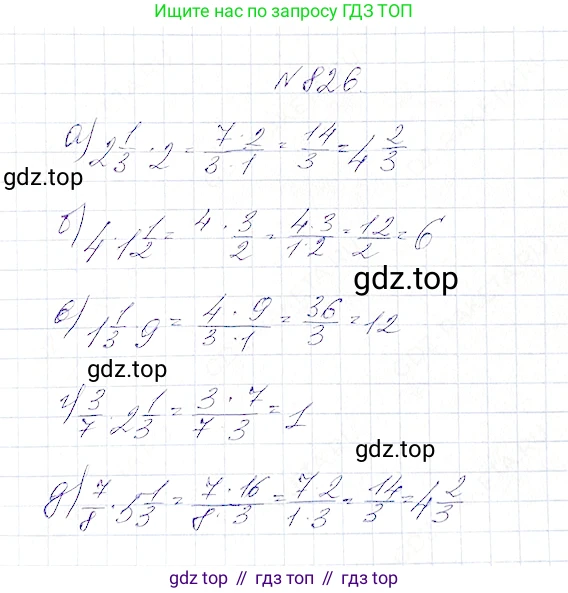 Ищите нас по запросу ГДЗ ТОП
№826.
а) 2 1/3 · 2 = 7·2/3·1 = 14/3 = 4 2/3
gdz.top
б) 4 · 1 1/2 = 4 · 3/2 = 4·3/1·2 = 12/2 = 6
gdz.top
в) 1 1/3 · 9 = 4·9/3·1 = 36/3 = 12
gdz.top
г) 3/7 · 2 1/3 = 3·7/7·3 = 1
gdz.top
д) 7/8 · 5 1/3 = 7·16/8·3 = 7 2/1·3 = 14/3 = 4 2/3
gdz top // гдз топ // gdz top